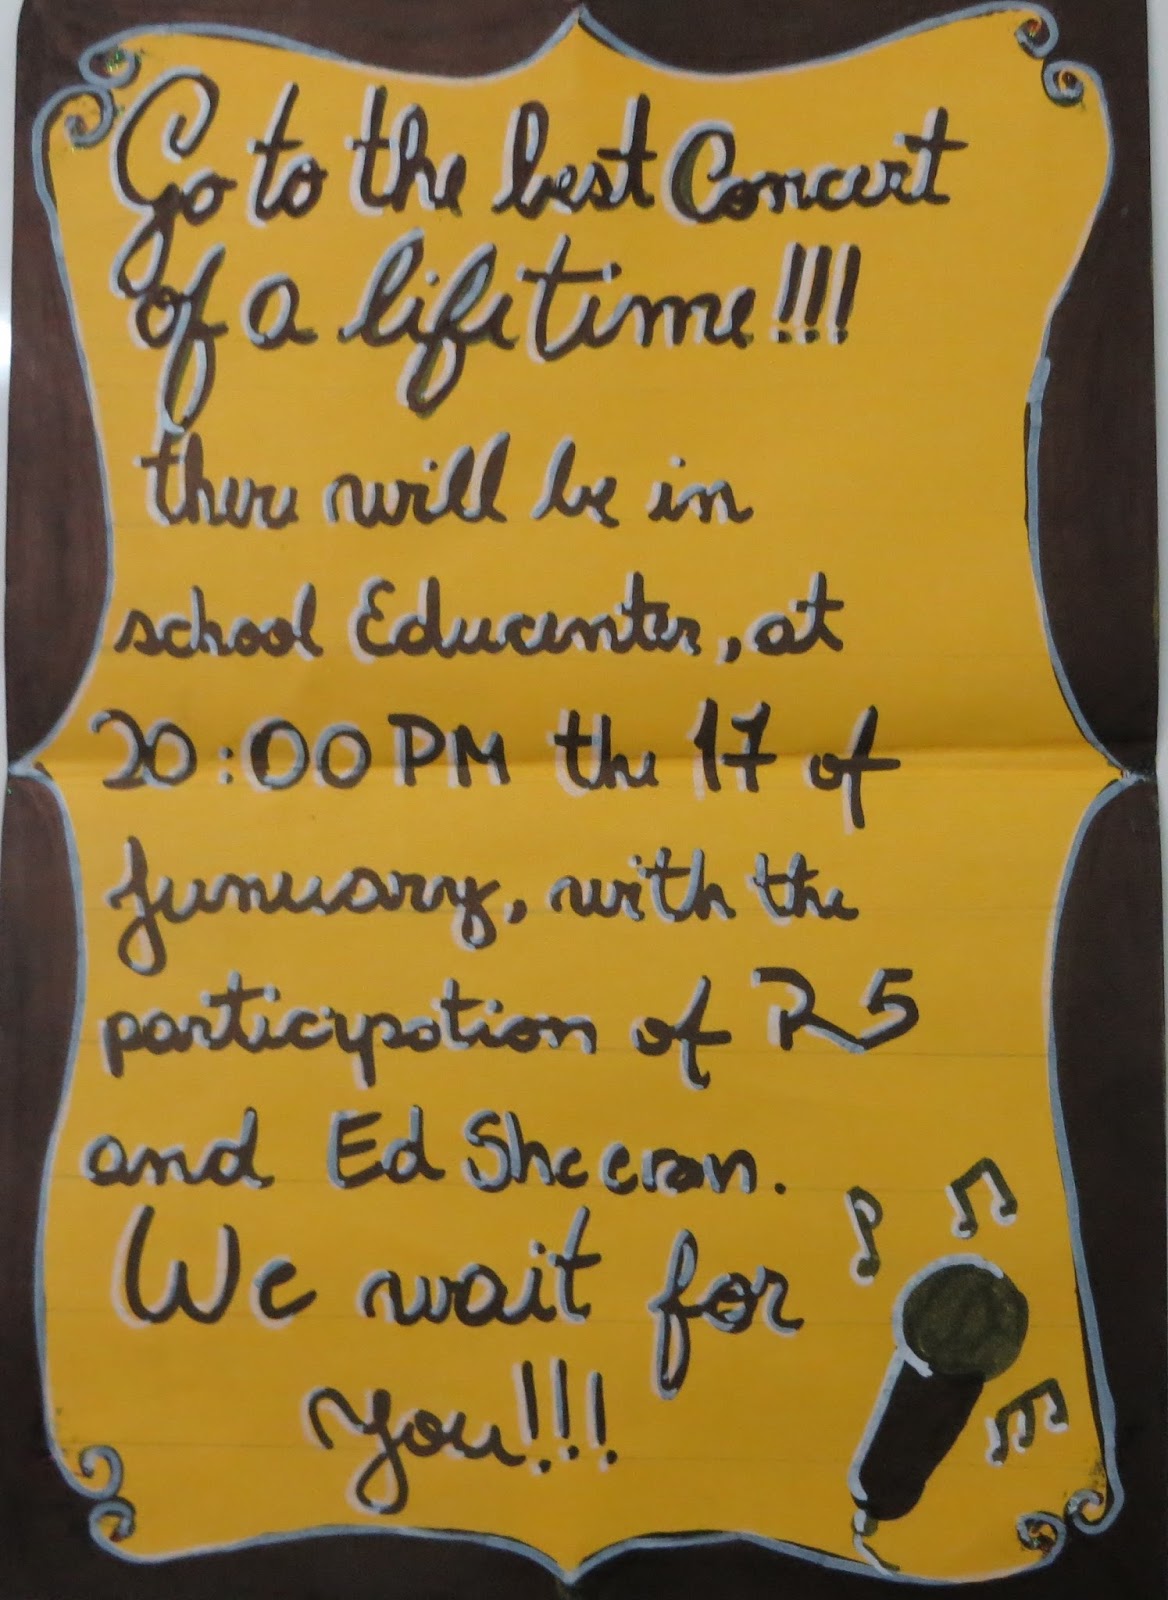 Go to the best Concert
of a lifetime!!!
there will be in
school Educenter, at
20:00 PM the 17 of
Junuary, with the
particypation of R5
and Ed Sheeran.
We wait for
you!!!